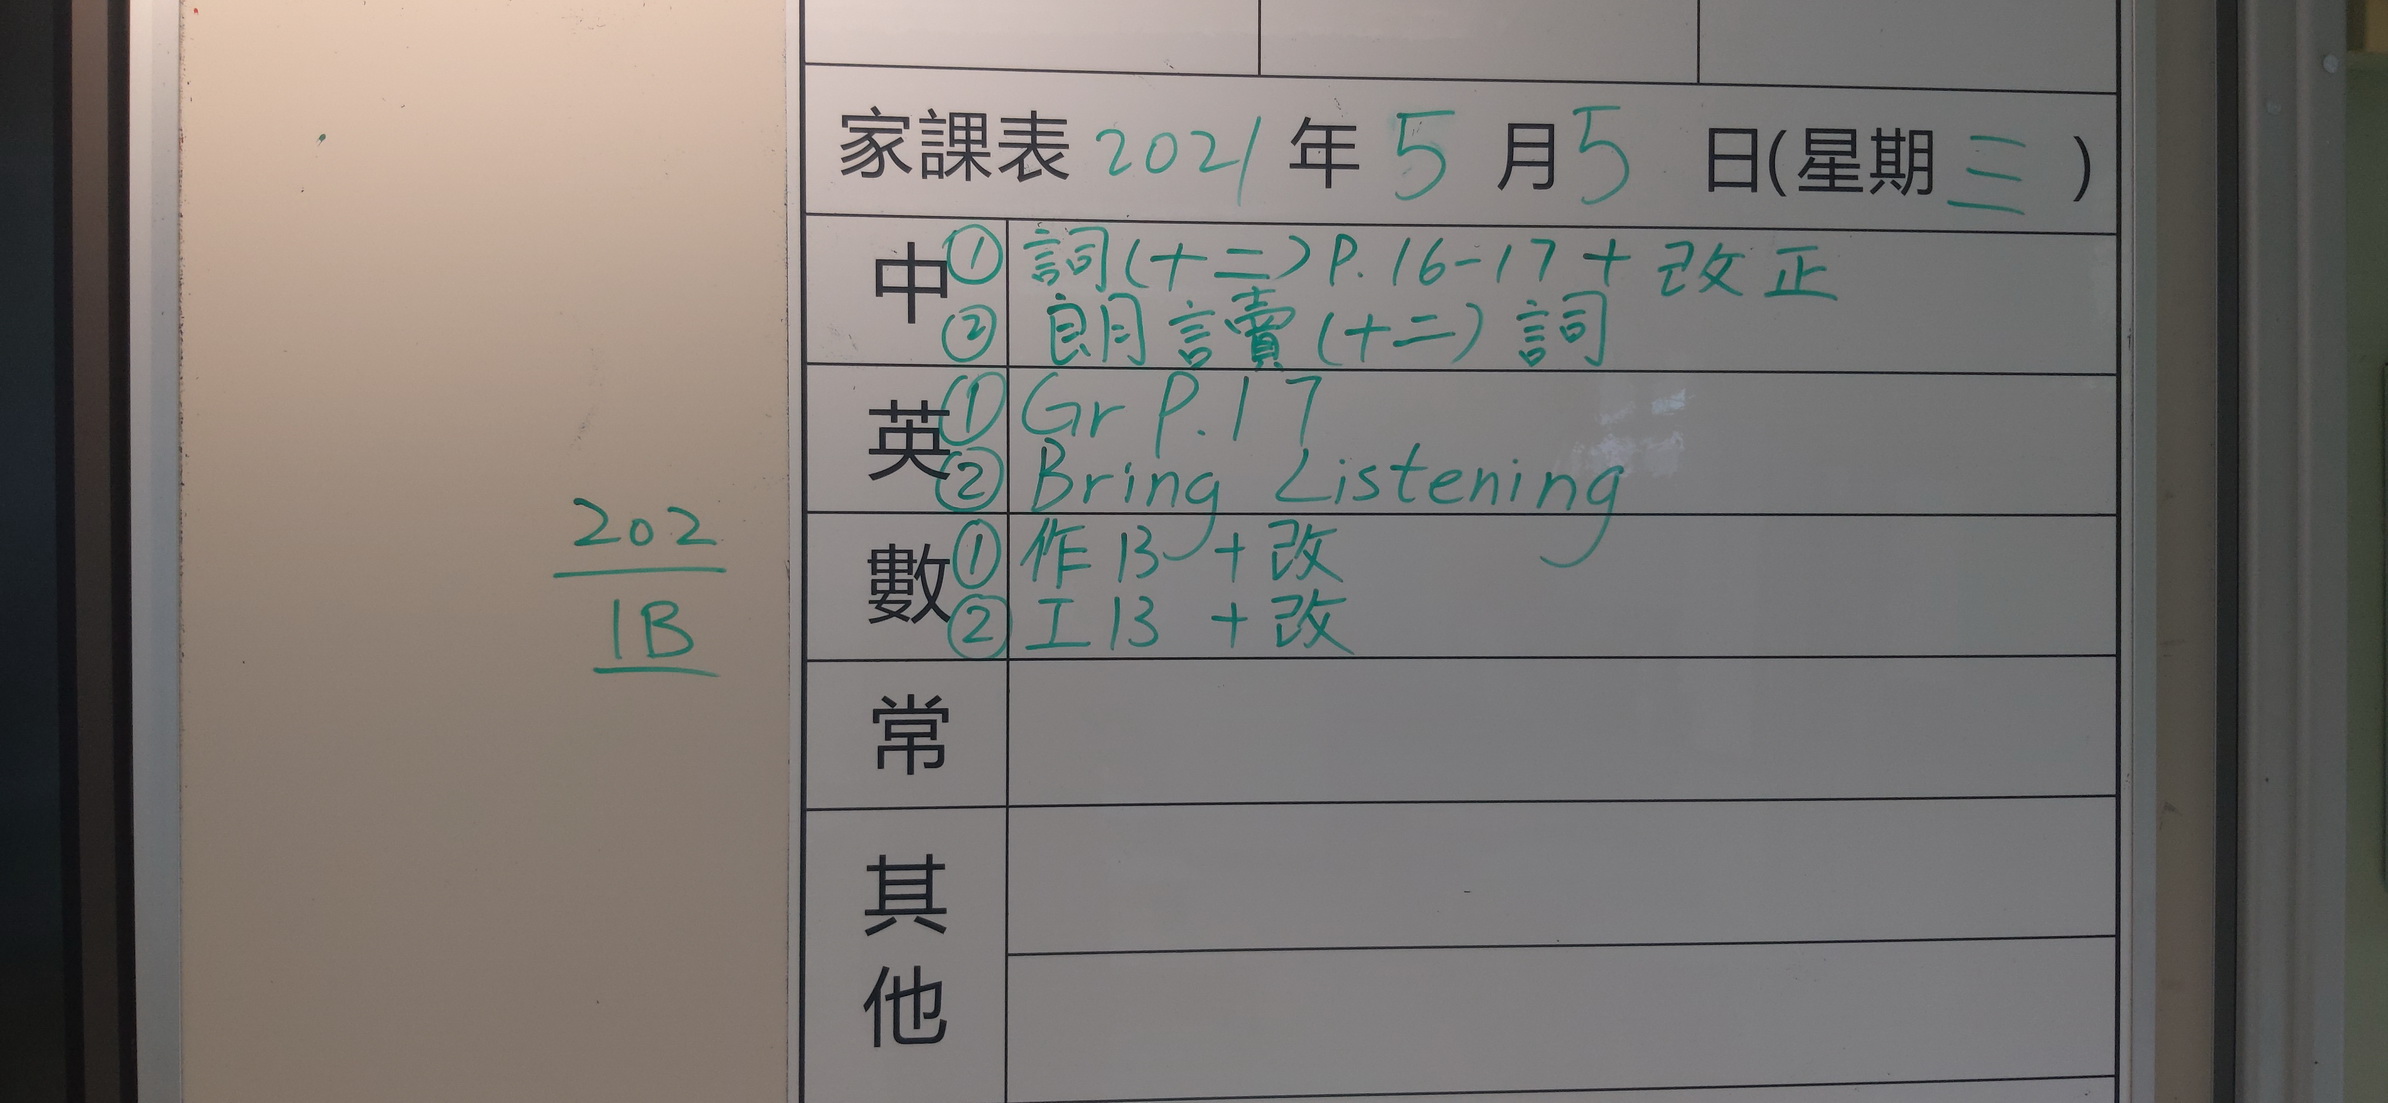 家課表 2021 年 5 月 5 日(星期三)
中 ① 詞(十二) P.16-17 + 改正
② 朗讀(十二)詞
英 ① Gr P.17
② Bring Listening
數 ① 作13 + 改
② 工13 + 改
常
其他
202
1B